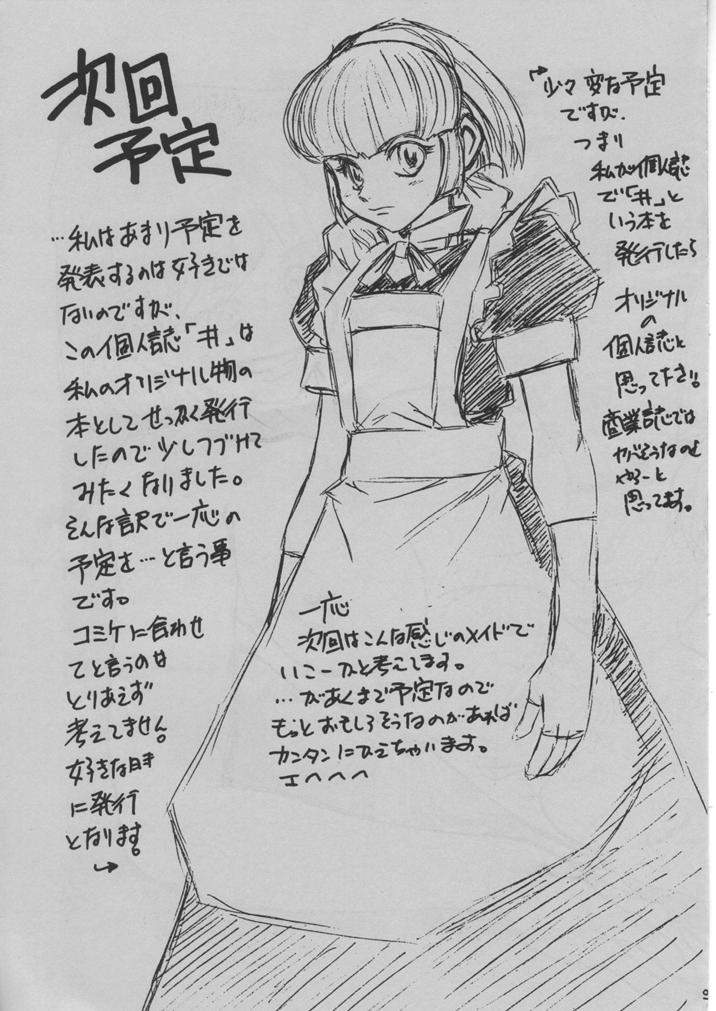 次回
予定
…私はあまり予定を
発表するのは好きでは
ないのですが、
この個人誌「井」は
私のオリジナル物の
本としてせっかく発行
したので少しつづけて
みたくなりました。
そんな訳で一応の
予定を…と言う事
です。
コミケに合わせ
てと言うのは
とりあえず
考えてません。
好きな時
に発行
となります。
→
→少々変な予定
ですが、
つまり
私が個人誌
で「井」と
いう本を
発行したら
オリジナル
の
個人誌と
思って下さい。
商業誌では
ヤバそうなのを
やろーと
思ってます。
一応
次回はこんな感じのメイドで
いこーかと考えてます。
…があくまで予定なので
もっとおもしろそうなのがあれば
カンタンにひえちゃいます。
エヘヘヘ